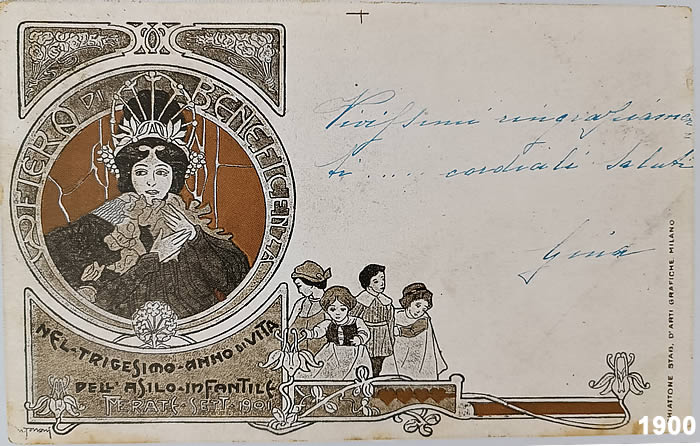 FIERA DI BENEFICENZA
NEL-TRIGESIMO-ANNO DI VITA
DELL'ASILO-INFANTILE
MERATE-SETT. 1901
Vivissimi ringraziamen
ti .... cordiali saluti
Gina
CHIATTONE STAB. D'ARTI GRAFICHE MILANO
1900